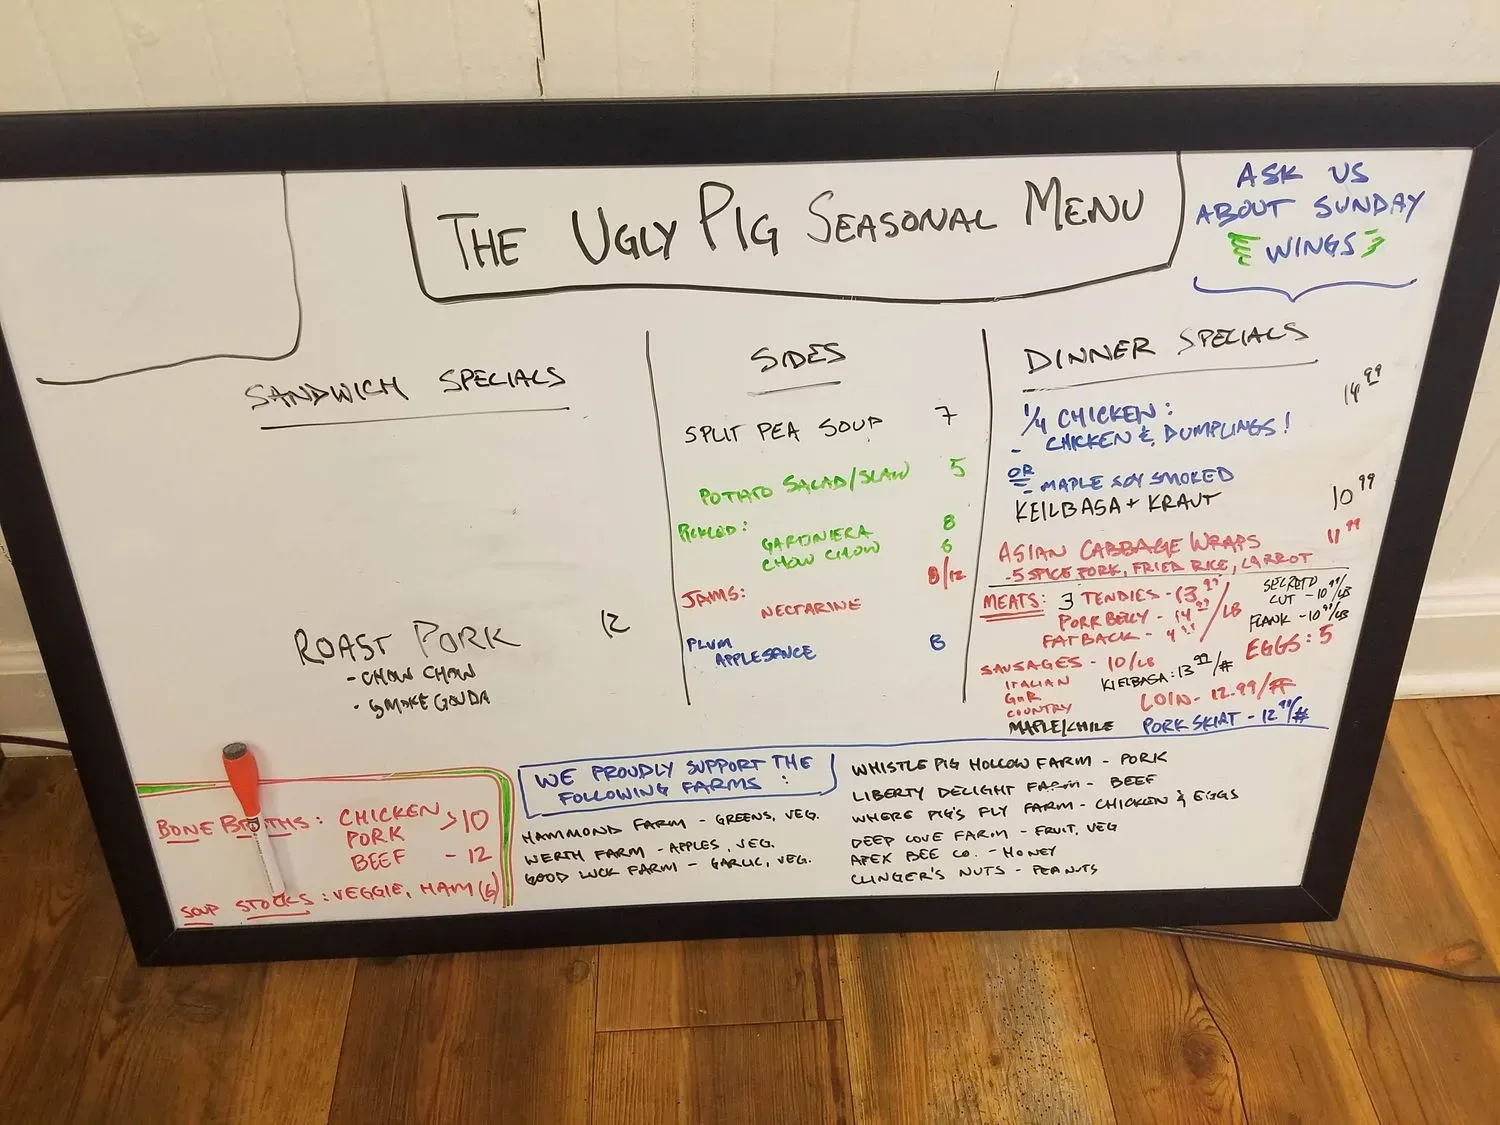 THE UGLY PIG SEASONAL MENU
ASK US
ABOUT SUNDAY
WINGS
SANDWICH SPECIALS
ROAST PORK 12
- CHOW CHOW
- SMOKE GOUDA
SIDES
SPLIT PEA SOUP 7
POTATO SALAD/SLAW 5
PICKLED:
GARDINIERA 8
CHOW CHOW 6
JAMS: 8/12
NECTARINE
PLUM
APPLESAUCE 8
DINNER SPECIALS
14.99
1/4 CHICKEN:
- CHICKEN & DUMPLINGS!
OR
- MAPLE SOY SMOKED
KEILBASA + KRAUT 10.99
ASIAN CABBAGE WRAPS 11.99
-5 SPICE PORK, FRIED RICE, CARROT
MEATS: 3 TENDIES - 13.99
PORK BELLY - 14.99 /LB
FATBACK - 4.99
SECRETO
CUT - 10.99/LB
FLANK - 10.99/LB
EGGS: 5
SAUSAGES - 10/LB
ITALIAN
COUNTRY
MAPLE/CHILE
KIELBASA: 13.99/#
LOIN - 12.99/#
PORK SKIAT - 12.99/#
BONE BROTHS: CHICKEN
PORK >10
BEEF - 12
SOUP STOCKS: VEGGIE, HAM (6)
WE PROUDLY SUPPORT THE
FOLLOWING FARMS:
HAMMOND FARM - GREENS, VEG.
WERTH FARM - APPLES, VEG.
GOOD LUCK FARM - GARLIC, VEG.
WHISTLE PIG HOLLOW FARM - PORK
LIBERTY DELIGHT FARM - BEEF
WHERE PIG'S FLY FARM - CHICKEN & EGGS
DEEP COVE FARM - FRUIT, VEG
APEX BEE CO. - HONEY
CLINGER'S NUTS - PEANUTS